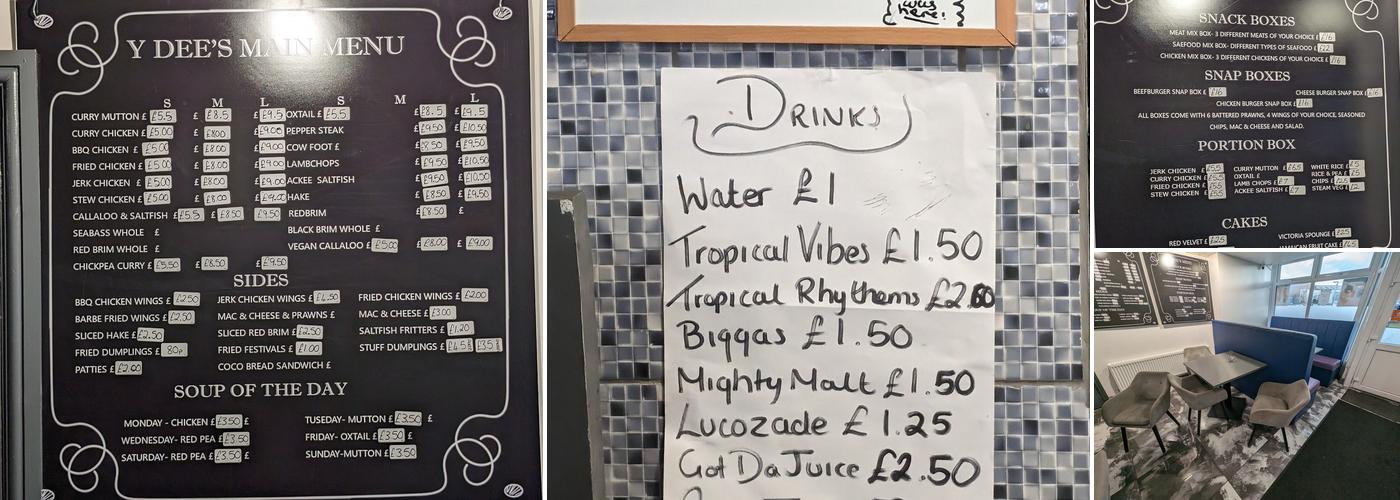 Y DEE'S MAIN MENU
S M L S M L
CURRY MUTTON £ £5.5 £ £8.5 £ £9.5 OXTAIL £ £5.5 £ £8.5 £ £9.5
CURRY CHICKEN £ £5.00 £ £8.00 £ £9.00 PEPPER STEAK £ £9.50 £ £10.50
BBQ CHICKEN £ £5.00 £ £8.00 £ £9.00 COW FOOT £ £ £8.50 £ £9.50
FRIED CHICKEN £ £5.00 £ £8.00 £ £9.00 LAMBCHOPS £ £9.50 £ £10.50
JERK CHICKEN £ £5.00 £ £8.00 £ £9.00 ACKEE SALTFISH £ £9.50 £ £10.50
STEW CHICKEN £ £5.00 £ £8.00 £ £9.00 HAKE £ £8.50 £ £9.50
CALLALOO & SALTFISH £ £5.5 £ £8.50 £ £9.50 REDBRIM £ £8.50 £
SEABASS WHOLE £ BLACK BRIM WHOLE £
RED BRIM WHOLE £ VEGAN CALLALOO £ £5.00 £ £8.00 £ £9.00
CHICKPEA CURRY £ £5.50 £ £8.50 £ £9.50
SIDES
BBQ CHICKEN WINGS £ £2.50 JERK CHICKEN WINGS £ £4.50 FRIED CHICKEN WINGS £ £2.00
BARBE FRIED WINGS £ £2.50 MAC & CHEESE & PRAWNS £ MAC & CHEESE £ £3.00
SLICED HAKE £ £2.50 SLICED RED BRIM £ £2.50 SALTFISH FRITTERS £ £1.20
FRIED DUMPLINGS £ 80p FRIED FESTIVALS £ £1.00 STUFF DUMPLINGS £
PATTIES £ £2.00 COCO BREAD SANDWICH £
SOUP OF THE DAY
MONDAY - CHICKEN £ £3.50 £ TUSEDAY- MUTTON £ £3.50 £
WEDNESDAY- RED PEA £ £3.50 FRIDAY- OXTAIL £ £3.50 £
SATURDAY- RED PEA £ £3.50 SUNDAY-MUTTON £ £3.50
was
here!
DRINKS
Water £1
Tropical Vibes £1.50
Tropical Rhythems £2.00
Biggas £1.50
Mighty Malt £1.50
Lucozade £1.25
Got Da Juice £2.50
SNACK BOXES
MEAT MIX BOX- 3 DIFFERENT MEATS OF YOUR CHOICE £ £16
SAEFOOD MIX BOX- DIFFERENT TYPES OF SEAFOOD £ £22
CHICKEN MIX BOX- 3 DIFFERENT CHICKENS OF YOUR CHOICE £ £16
SNAP BOXES
BEEFBURGER SNAP BOX £ £16 CHEESE BURGER SNAP BOX £ £16
CHICKEN BURGER SNAP BOX £ £16
ALL BOXES COME WITH 6 BATTERED PRAWNS, 4 WINGS OF YOUR CHOICE, SEASONED
CHIPS, MAC & CHEESE AND SALAD.
PORTION BOX
JERK CHICKEN £ £5.5 CURRY MUTTON £ £6.5 WHITE RICE £
CURRY CHICKEN £ £5.5 OXTAIL £ RICE & PEA £
FRIED CHICKEN £ £5.5 LAMB CHOPS £ £7 CHIPS £
STEW CHICKEN £ £5.5 ACKEE SALTFISH £ £7 STEAM VEG £
CAKES
RED VELVET £ £2.5 VICTORIA SPOUNGE £ £2.5
JAMAICAN FRUIT CAKE £